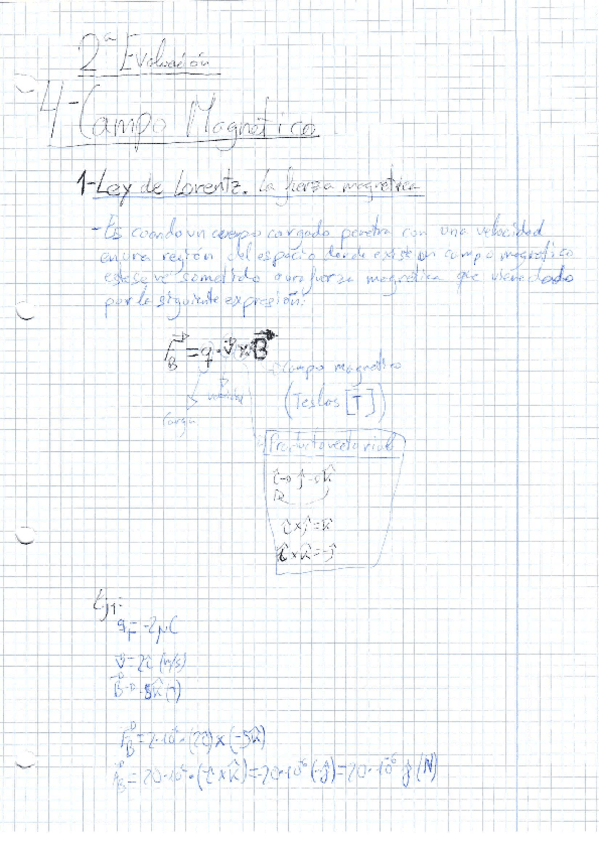 2ª Evaluación
4-Campo Magnético
1-Ley de Lorentz. La fuerza magnética
-Es cuando un cuerpo cargado penetra con una velocidad
en una región del espacio donde existe un campo magnético
este se ve sometido a una fuerza magnética que viene dado
por la siguiente expresión:
F⃗_B = q · v⃗ x B⃗
Campo magnético
velocidad
(Teslas [T])
Carga
Producto vectorial
î → ĵ → k̂
î x ĵ = k̂
î x k̂ = -ĵ
Ej1-
q = -2μC
v⃗ = 2î (m/s)
(T)
x (-5k̂)
· (î x k̂) = -20·10⁻⁶ (-ĵ) = 20·10⁻⁶ ĵ (N)